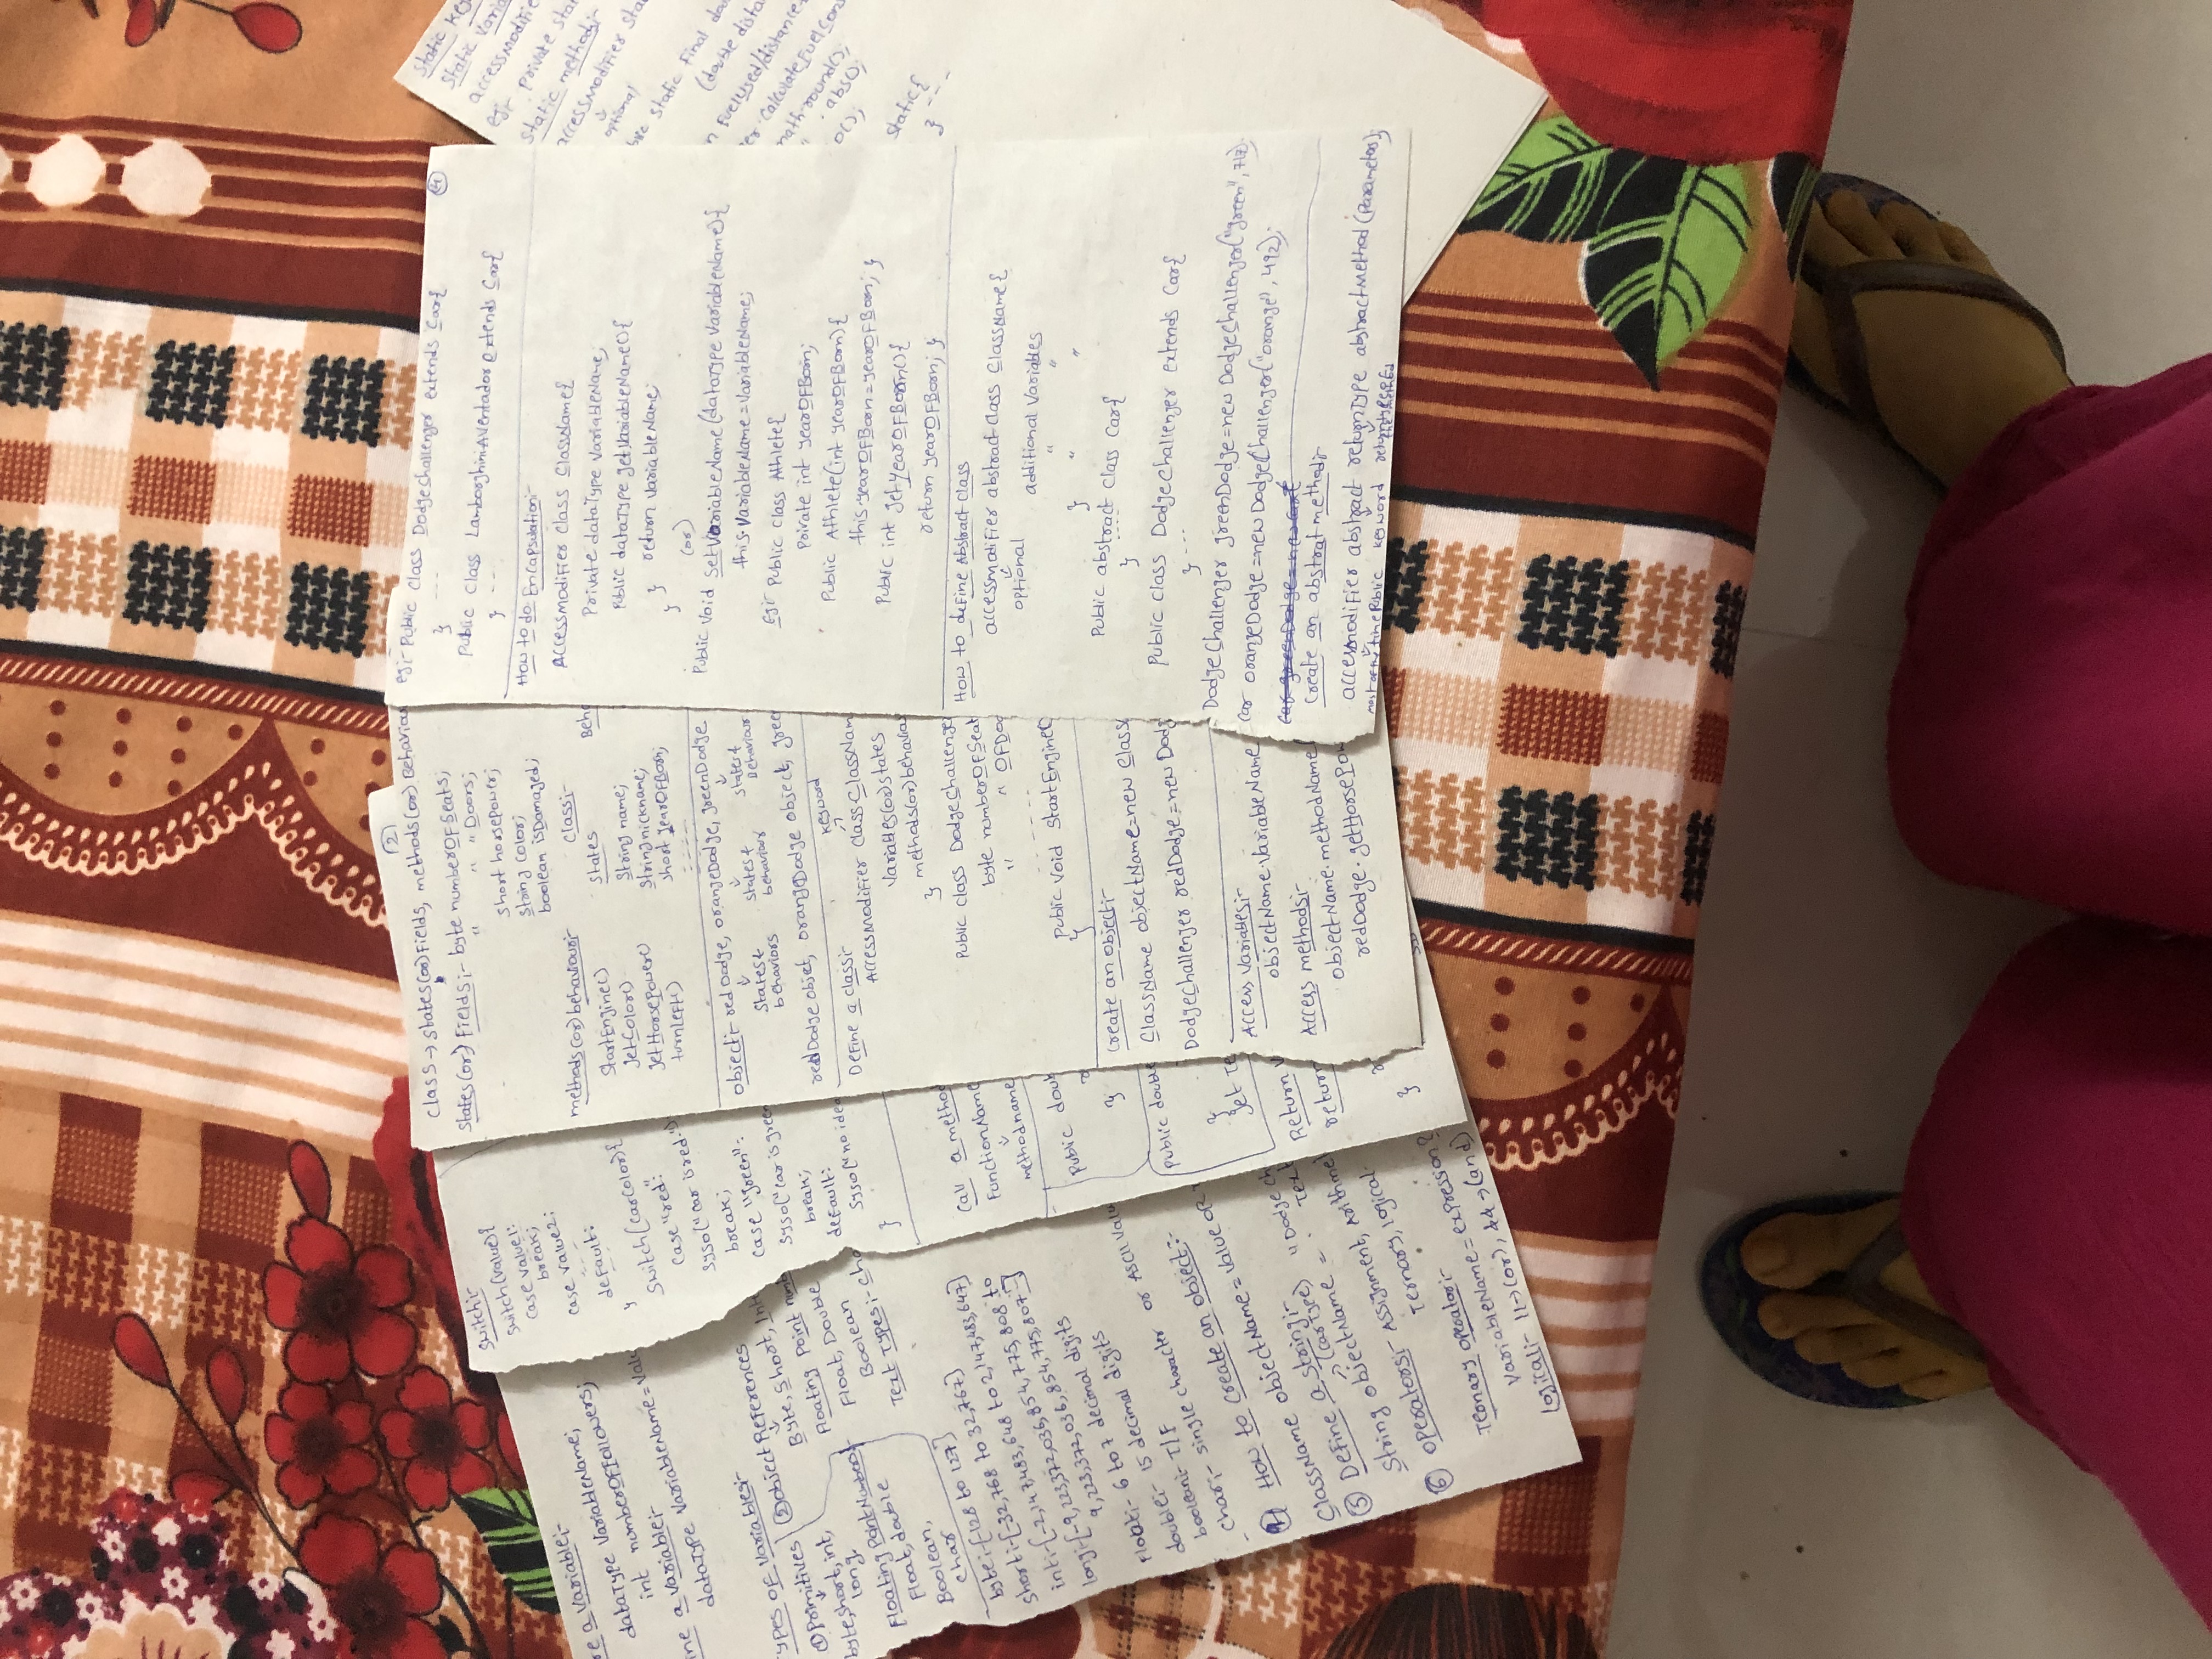 re a variable:-
dataType variableName;
int numberOfFollowers;
ine a variable:-
dataType variableName = valu
Types of variables:-
① Primitives
byte, short, int,
long.
Floating Point Numbers
Float, double
Boolean,
char
② Object References
Byte, Short, Int
Floating Point numb
Float, Double
Boolean
Text Types:- cha
byte:- [128 to 127]
short:- [-32,768 to 32,767]
int:- [-2,147,483,648 to 2,147,483,647]
long:- [-9,223,372,036,854,775,808 to
9,223,372,036,854,775,807]
Float:- 6 to 7 decimal digits
double:- 15 decimal digits
boolean:- T/F
char:- single character or ASCII valu
④ How to create an object:-
ClassName objectName = value or
⑤ Define a string:-
(carType) "Dodge ch
String objectName = " Text
⑥ operators:- Assignment, Arithme
Ternary, logical
Ternary operator:-
variableName = expression ?
logical:- ||→(or), &&→(and)
switch:-
switch(value){
case value1:
break;
case value2:
default:
}
switch(carColor){
case "red":
syso("car is red.")
break;
case "green":
syso("car is green
break;
default:
syso("no idea
}
Call a metho
FunctionName
methodname
public doub
}
public double
}
get Te
Return v
return
}
②
class → States(or) Fields, methods(or) Behaviou
States(or) Fields:- byte numberOfSeats;
" " Doors;
short horsePower;
String color;
boolean isDamaged;
methods(or) behaviour:-
StartEngine()
getColor()
getHorsePower()
turnLeft()
class:-
States Beh
String name;
String nickname;
short yearOfBorn;
object:- redDodge, orangeDodge, greenDodge
States & behaviors
states & behaviour
states & Behaviour
redDodge objet, orangeDodge object, gree
Define a class:- keyword
AccessModifier class ClassNam
variables(or) states
methods(or) behavio
}
public class DodgeChallenge
byte numberOfSeat
" " OfDoo
public void StartEngine(
}
Create an object:-
ClassName objectName = new Class
DodgeChallenger redDodge = new Dodg
Access variables:-
objectName.variableName
Access methods:-
objectName.methodName
redDodge.getHorsePow
④
eg:- Public class DodgeChallenger extends Car{
} ---
Public class LamborghiniAventador extends Car{
} ---
How to do Encapsulation:-
AccessModifier class ClassName{
Private dataType variableName;
Public dataType getVariableName(){
return variableName;
}
}
(or)
Public void SetVariableName(dataType variableName){
this.variableName = variableName;
Eg:- Public class Athlete{
Private int yearOfBorn;
Public Athlete(int yearOfBorn){
this.yearOfBorn = yearOfBorn; }
Public int getYearOfBorn(){
return yearOfBorn; }
How to define Abstract class
accessmodifier abstract class ClassName{
optional
additional variables
" "
} " "
Public abstract class Car{
}
Public class DodgeChallenger extends Car{
} ---
DodgeChallenger greenDodge = new DodgeChallenger("green", 717);
Car orangeDodge = new DodgeChallenger("orange", 492);
Create an abstrat method:-
accessmodifier abstract returnType abstractMethod(parameters);
most of the time public keyword
static key
static varia
accessModifie
eg:- private stat
static method:-
accessModifier sta
optional
static final dou
(double distan
fuelused/distance
Calculatefuelcons
math.round();
" . abs();
static{
} ---